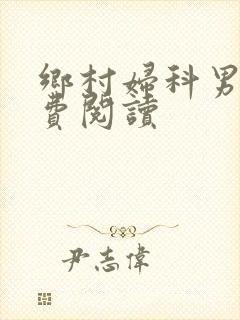 鄉村婦科男
費閱讀
尹志偉